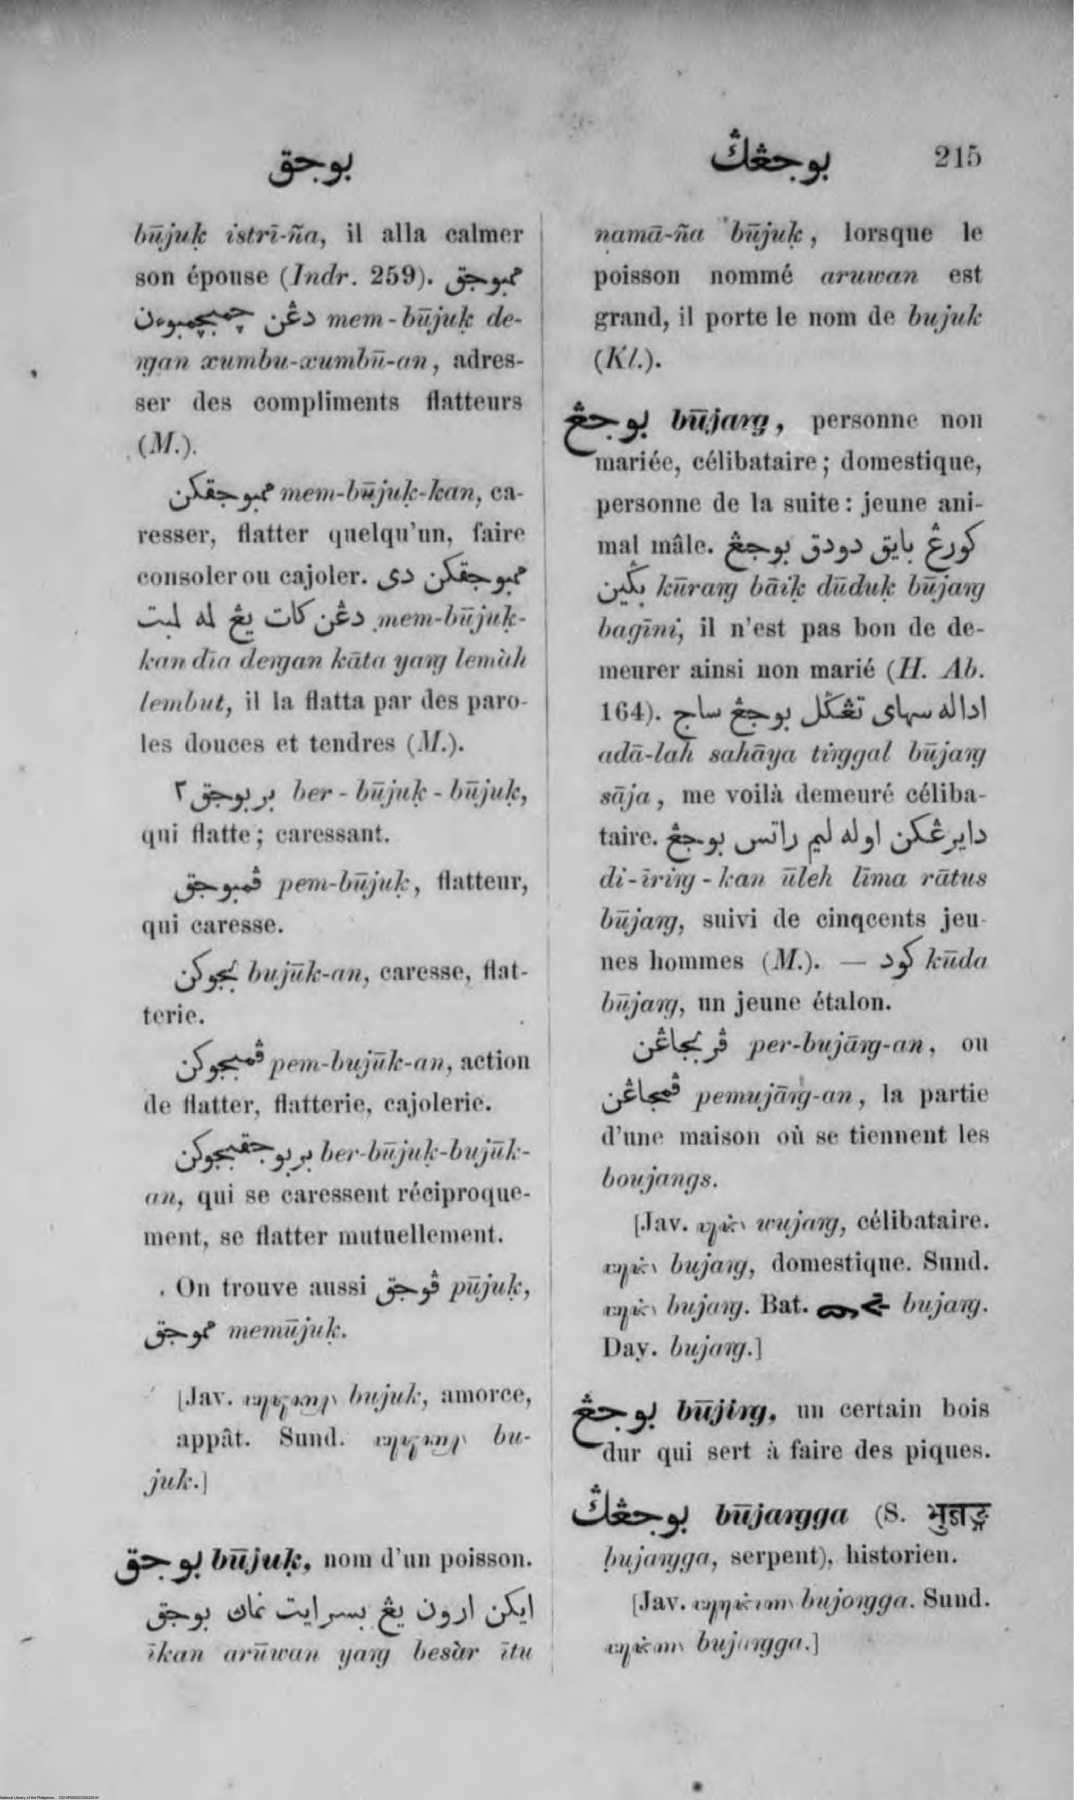 بوجق
بوجڠݢ 215
būjuḳ istrī-ña, il alla calmer
son épouse (Indr. 259). ممبوجق
دڠن چمبچمبوءن mem-būjuḳ de-
ngan xumbu-xumbū-an, adres-
ser des compliments flatteurs
(M.).
ممبوجقكن mem-būjuḳ-kan, ca-
resser, flatter quelqu'un, faire
consoler ou cajoler. ممبوجقكن دى
دڠن كات يڠ له لمبت mem-būjuḳ-
kan dīa dengan kāta yang lemàh
lembut, il la flatta par des paro-
les douces et tendres (M.).
بربوجق٢ ber-būjuḳ-būjuḳ,
qui flatte; caressant.
ڤمبوجق pem-būjuḳ, flatteur,
qui caresse.
بجوكن bujūk-an, caresse, flat-
terie.
ڤمبجوكن pem-bujūk-an, action
de flatter, flatterie, cajolerie.
بربوجقبجوكن ber-būjuḳ-bujūk-
an, qui se caressent réciproque-
ment, se flatter mutuellement.
On trouve aussi ڤوجق pūjuḳ,
مموجق memūjuḳ.
[Jav. bujuk, amorce,
appât. Sund. bu-
juk.]
بوجق būjuḳ, nom d'un poisson.
ايكن ارون يڠ بسرايت نمان بوجق
īkan arūwan yang besàr ītu
namā-ña būjuḳ, lorsque le
poisson nommé aruwan est
grand, il porte le nom de bujuk
(Kl.).
بوجڠ būjang, personne non
mariée, célibataire; domestique,
personne de la suite: jeune ani-
mal mâle. كورڠ بايق دودق بوجڠ
بݢين kūrang bāiḳ dūduḳ būjang
bagīni, il n'est pas bon de de-
meurer ainsi non marié (H. Ab.
164). اداله سهاى تڠݢل بوجڠ ساج
adā-lah sahāya tinggal būjang
sāja, me voilà demeuré céliba-
taire. دايرڠكن اوله ليم راتس بوجڠ
di-īring-kan ūleh līma rātus
būjang, suivi de cinqcents jeu-
nes hommes (M.). — كود kūda
būjang, un jeune étalon.
ڤربجاڠن per-bujāng-an, ou
ڤمجاڠن pemujāng-an, la partie
d'une maison où se tiennent les
boujangs.
[Jav. wujang, célibataire.
bujang, domestique. Sund.
bujang. Bat. bujang.
Day. bujang.]
بوجڠ būjing, un certain bois
dur qui sert à faire des piques.
بوجڠݢ būjangga (S. भुजङ्ग
bujangga, serpent), historien.
[Jav. bujongga. Sund.
bujangga.]